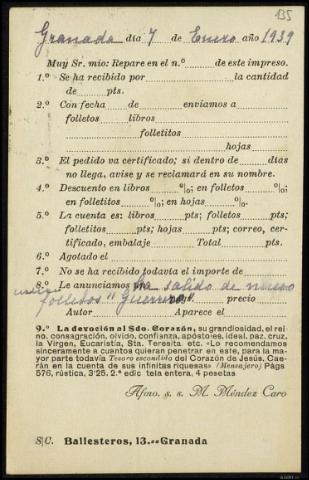 135
Granada día 7 de Enero año 1939
Muy Sr. mío: Repare en el n.º de este impreso.
1.º Se ha recibido por la cantidad
de pts.
2.º Con fecha de enviamos a
folletos libros
folletitos
hojas
3.º El pedido va certificado; si dentro de días
no llega, avise y se reclamará en su nombre.
4.º Descuento en libros º|o; en folletos º|o;
en folletitos º|o; en hojas º|o.
5.º La cuenta es: libros pts; folletos pts;
folletitos pts; hojas pts; correo, cer-
tificado, embalaje Total pts.
6.º Agotado el
7.º No se ha recibido todavía el importe de
8.º Le anunciamos ha salido de nuevo
folletos "Guerrero". precio
Autor Aparece el
9.º La devoción al Sdo. Corazón, su grandiosidad, el rei-
no. consagración, olvido, confianza, apóstoles, ideal, paz, cruz,
la Virgen, Eucaristía, Sta. Teresita. etc. «Lo recomendamos
sinceramente a cuantos quieran penetrar en este, para la ma-
yor parte todavía Tesoro escondido del Corazón de Jesús, Cae-
rán en la cuenta de sus infinitas riquesas» (Mensajero) Págs
576, rústica, 3'25. 2.ª edic tela entera. 4 pesetas
Afmo. s. s. M. Méndez Caro
S|C. Ballesteros, 13.--Granada